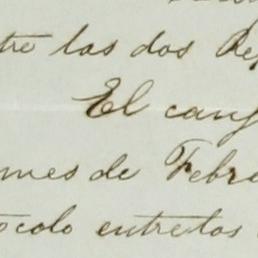 tre las dos Rep
El cang
mes de Febre
ocolo entre los